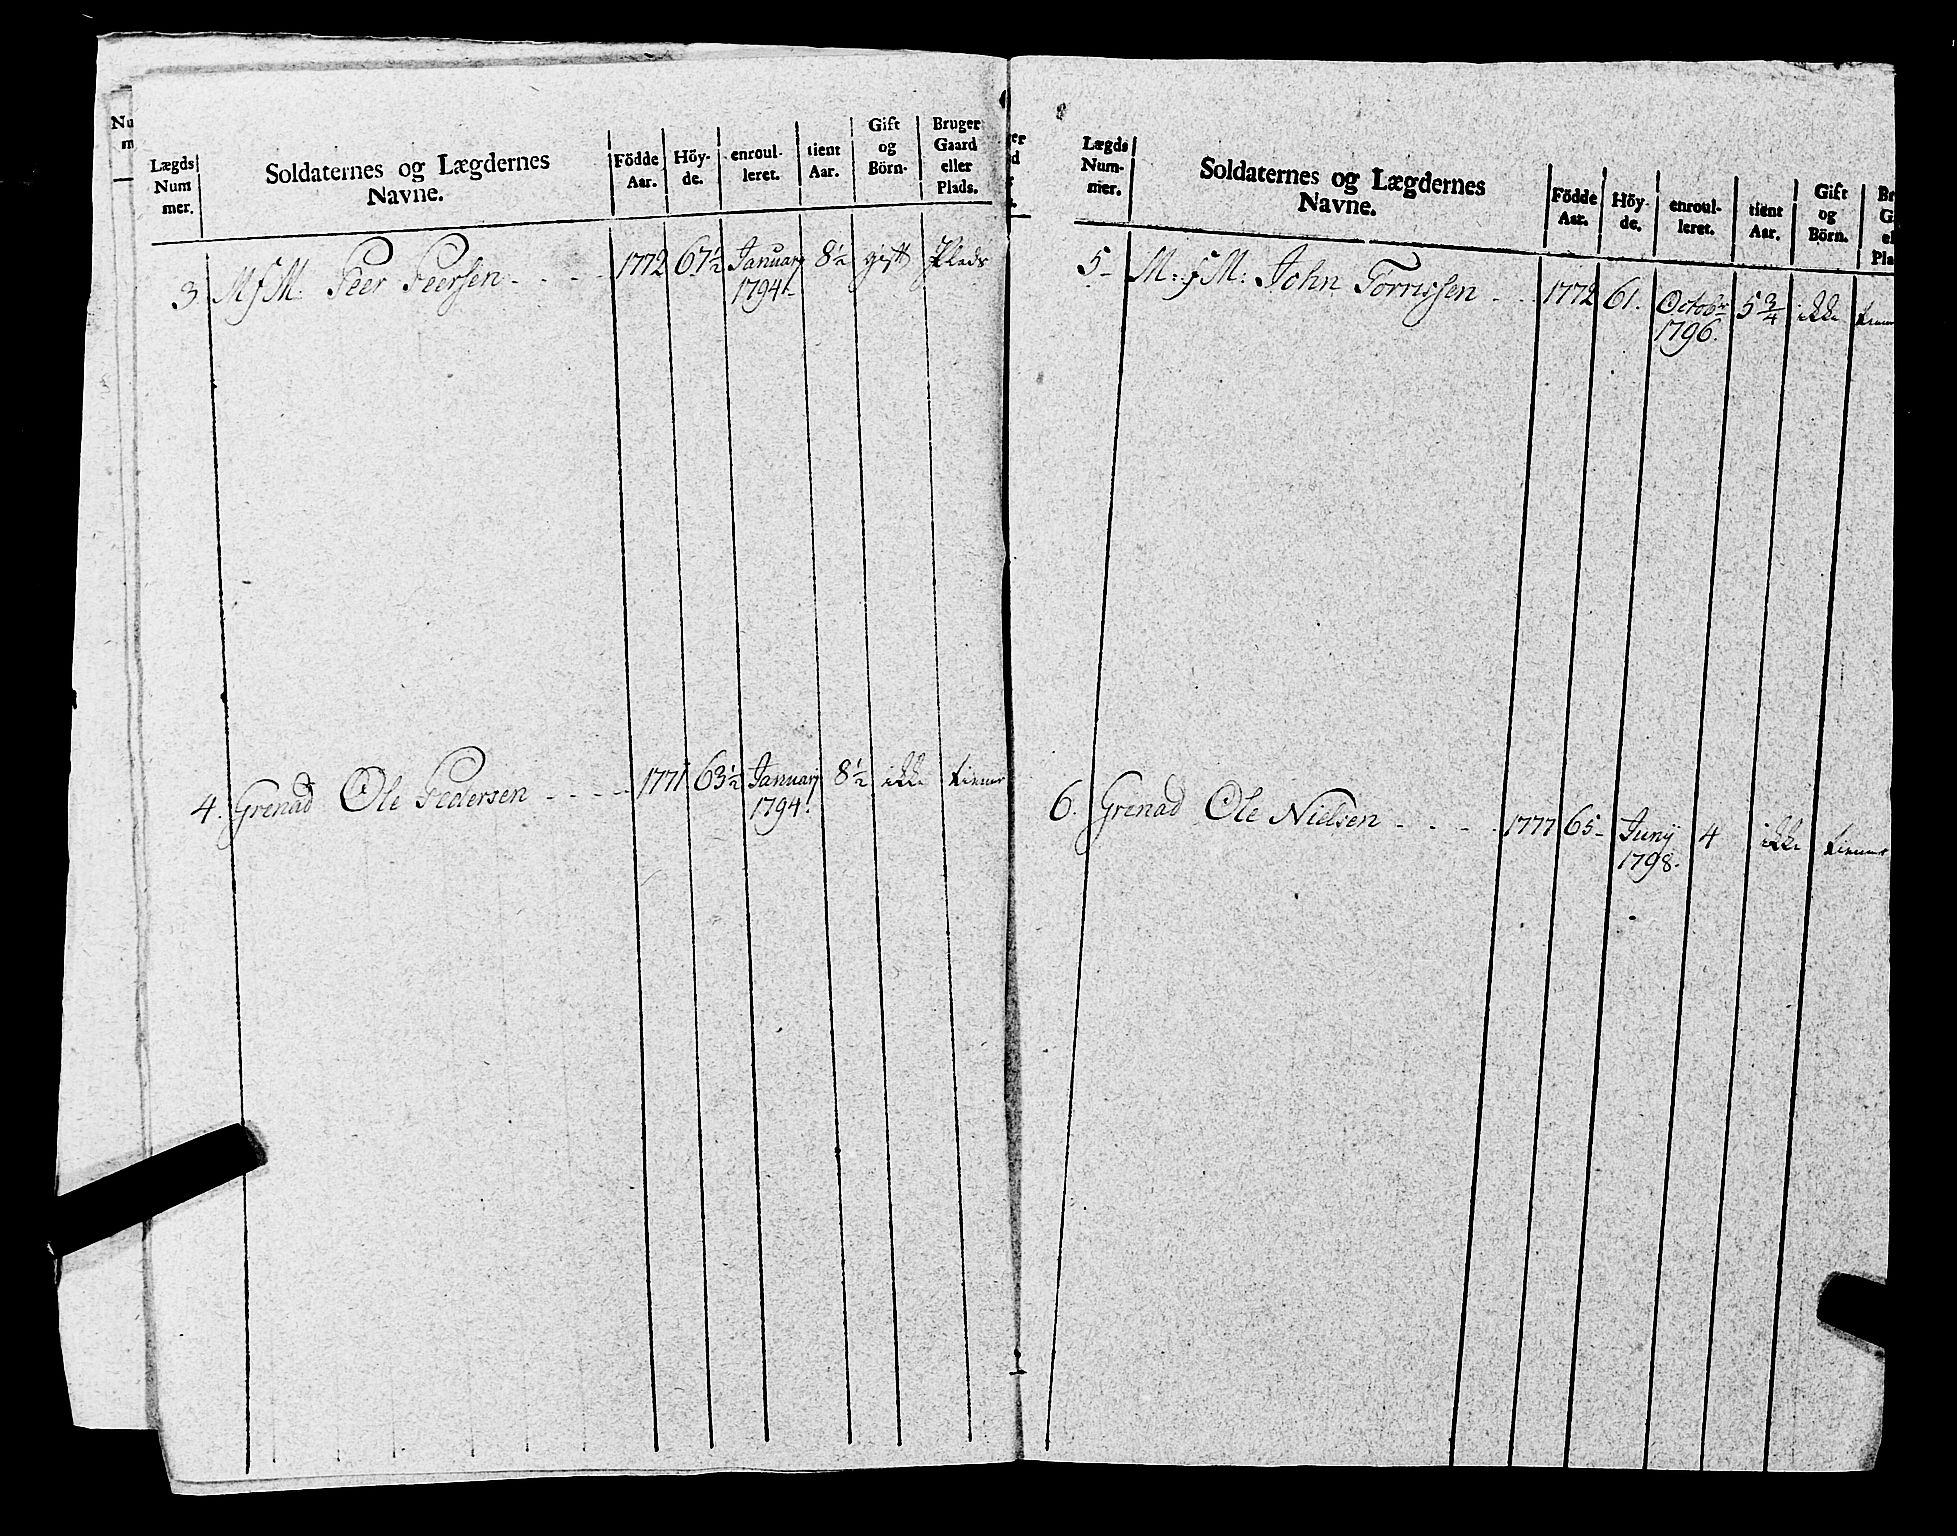 Lægds Num mer.
Soldaternes og Lægdernes Navne.
Födde Aar.
Höy- de.
enroul- leret.
tient Aar.
Gift og Börn.
Bruger Gaard eller Plads.
3 M f M: Peer Peersen - - - 1772 67½ January 8½ gift Plads
1794.
4. Grenad Ole Pedersen - - - - 1771 63½ January 8½ ikke tiener
1794.
Lægds Num- mer.
Soldaternes og Lægdernes Navne.
Födde Aar.
Höy- de.
enroul- leret.
tient Aar.
Gift og Börn.
5- M: f M: John Torrissen - - 1772 61. Octobr 5¾ ikke tiener
1796.
6. Grenad Ole Nielsen - - - - 1777 65- Juny 4 ikke tiener
1798.